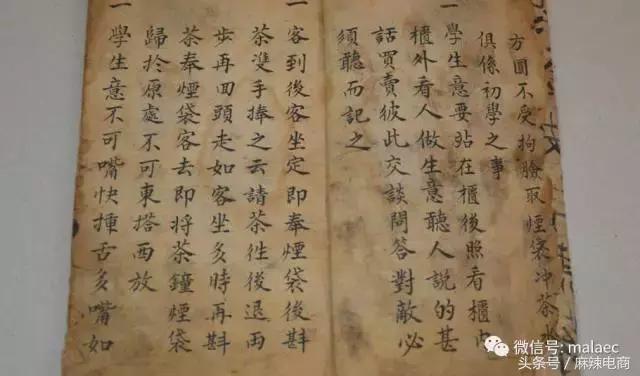 方圓不受拘臉取煙袋沖茶水
俱係初學之事
一學生意要站在櫃後照看櫃內
櫃外看人做生意聽人說的甚
話買賣彼此交談問答對敵必
須聽而記之
一客到後客坐定即奉煙袋後斟
茶雙手捧之云請茶徃後退兩
步再回頭走如客坐多時再斟
茶奉煙袋客去即將茶鐘煙袋
歸於原處不可東搭西放
一學生意不可嘴快揮舌多嘴如
微信号: malaec
头条号 / 麻辣电商